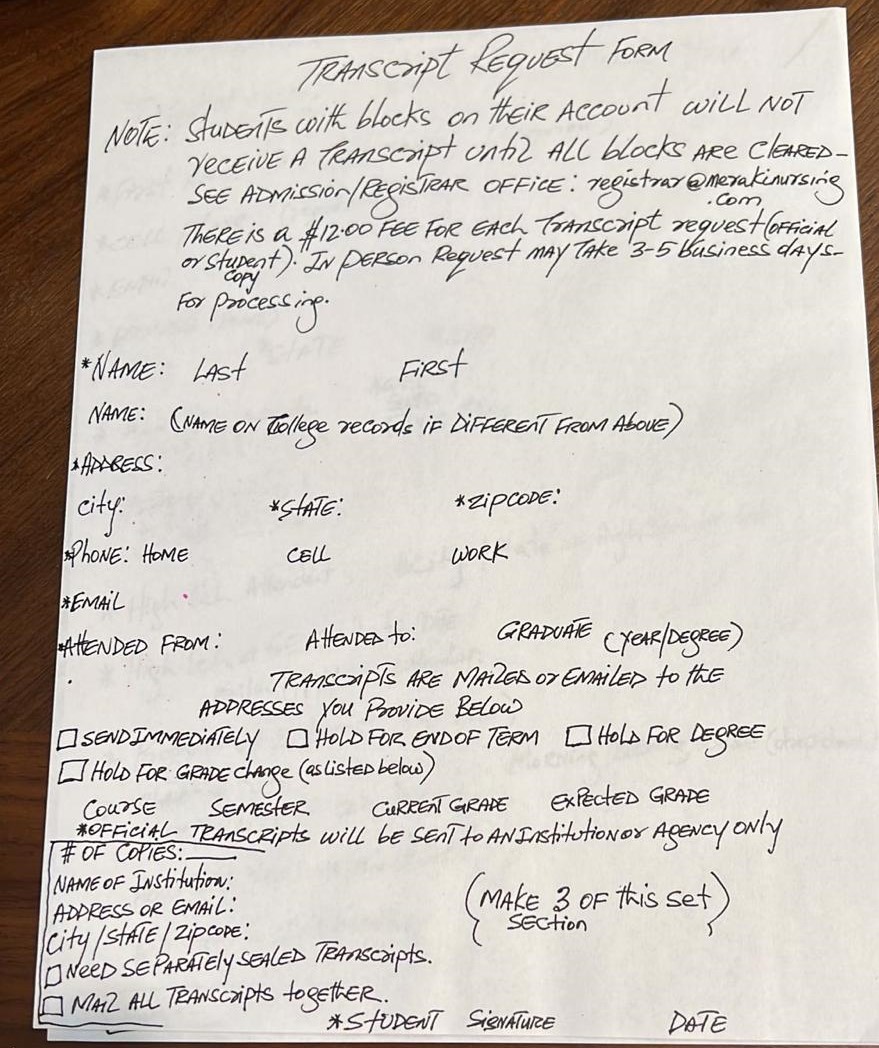 TRANScript Request FORM
NOTE: StUDENTS with blocks on their Account will NOT
receive A Transcript until All blocks are Cleared-
SEE ADMISSION/REGISTRAR OFFICE: registrar@merakinursing
.com
THERE is a $12.00 FEE FOR EAch Transcript request (OFFICIAL
or Student). IN person Request may Take 3-5 business days-
copy
For Processing.
*NAME: LAst First
NAME: (NAME ON College records iF DIFFERENT FROM Above)
*ADDRESS:
City: *StATE: *ZipCODE:
*PhONE: HOME CELL WORK
*EMAiL
*AttENDED FROM: AttENDED to: GRADUATE (YEAR/DEgREE)
TRANScripTs ARE MAILED or EMAILED to the
ADDRESSES You Provide BELOW
☐ SEND IMMEDIATELY ☐ HOLD FOR END OF TERM ☐ HOLD FOR DEGREE
☐ HOLD FOR GRADE change (as listed below)
Course SEMESTER CURRENT GRADE EXPECTED GRADE
*OFFICIAL TRANScripts will be SENT to AN Institution or AGENCY ONLY
# OF COPIES: ____
NAME OF Institution:
ADDRESS OR EMAIL:
City/STATE/ZipCODE:
(MAKE 3 OF this set)
SECtion
☐ NeeD SEPARATEly SEALED TRANScripts.
☐ MAIL ALL TRANScripts together.
*StUDENT SIGNATURE DATE